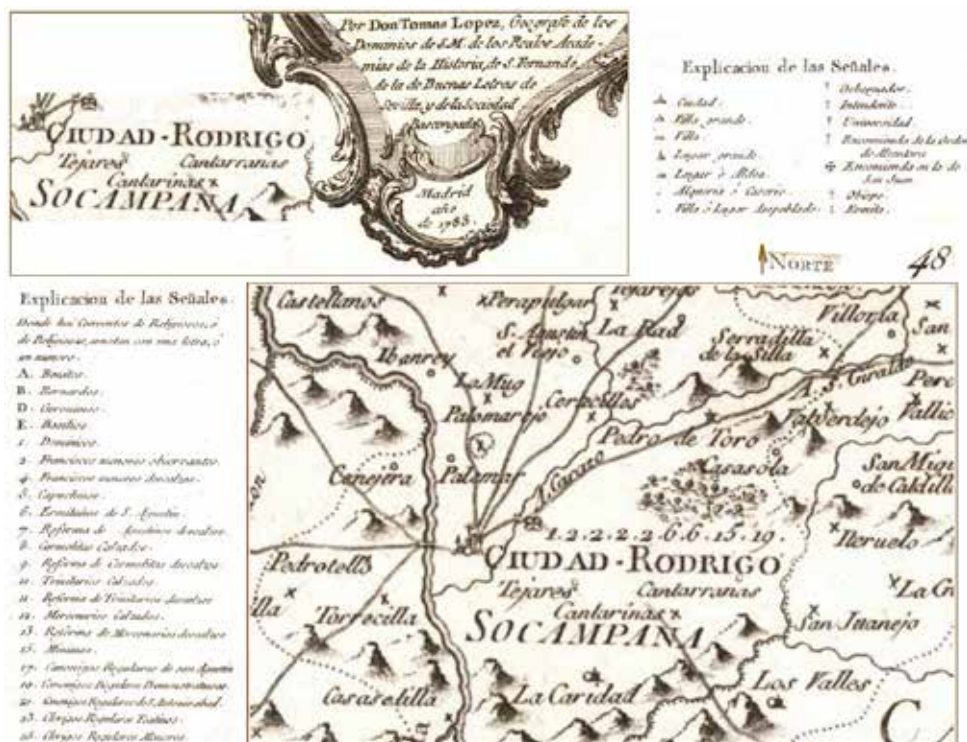 Por Don Tomas Lopez, Geografo de los
Dominios de S.M. de los Reales Acade-
mias de la Historia, de S. Fernando,
de la de Buenas Letras de
Sevilla, y de la Sociedad
Bascongada
Madrid
año
de 1783.
CIUDAD-RODRIGO
Tejares Cantarranas
Cantarinas
SOCAMPANA
Explicacion de las Señales.
Ciudad.
Villa grande.
Villa.
Lugar grande.
Lugar ó Aldea.
Alqueria ó Caserio.
Villa ó Lugar despoblado.
Gobernador.
Intendente.
Universidad.
Encomienda de la Orden
de Alcantara
Encomienda en la de
San Juan
Obispo.
Ermita.
NORTE
48
Explicacion de las Señales.
Donde hai Conventos de Religiosos, ó
de Religiosas, se notan con una letra, ó
un numero.
A. Benitos.
B. Bernardos.
D. Geronimos.
E. Basilios
1. Dominicos.
2. Franciscos menores observantes.
4. Franciscos menores descalzos.
5. Capuchinos.
6. Ermitaños de S. Agustin.
7. Reforma de Agustinos descalzos
8. Carmelitas Calzados.
9. Reforma de Carmelitas descalzos
Trinitarios Calzados.
11. Reforma de Trinitarios descalzos
12. Mercenarios Calzados.
13. Reforma de Mercenarios descalzos
15. Minimos.
17. Canonigos Regulares de san Agustin
19. Canonigos Regulares Premonstratenses.
Canonigos Regulares de S. Antonio abad.
23. Clerigos Reglares Teatinos.
Clerigos Reglares Menores.
Castellanos
Perapulgar
Tejarejos
Villoria
S. Agustin
el Viejo
La Rad
Serradilla
de la Silla
San
Ibanrey
La Mug
A. S. Giraldo
Palomarejo
Valverdejo
Vallic
Pedro de Toro
Canejera
Palomar
Casasola
San Migu
de Caldilla
1. 2. 2. 2. 2. 6. 6. 15. 19.
CIUDAD-RODRIGO
Iteruelo
Pedrotello
Tejares
Cantarranas
La G
illa
Torrecilla
Cantarinas
San Juanejo
SOCAMPANA
Casasetilla
La Caridad
Los Valles
C